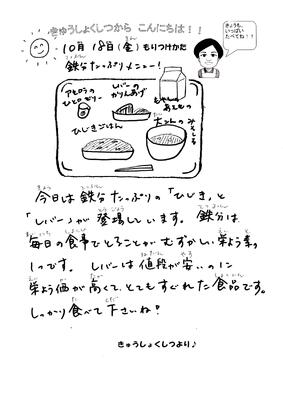 きゅうしょくしつから こんにちは!!
きょうも、
いっぱい
たべてね!!
10月 18日(金) もりつけかた
鉄分たっぷりメニュー!
アセロラの
ひとロゼリー
レバーの
かりんあげ
もやしの
あえもの
ひじきごはん
大こんの みそしる
今日は 鉄分 たっぷりの 「ひじき」と
「レバー」が 登場しています。 鉄分は
毎日の食事でとることが むずかしい 栄よう素の
1つです。 レバーは 値段が 安いのに
栄よう価が 高くて、とても すぐれた 食品です。
しっかり 食べて 下さいね?
きゅうしょくしつより♪